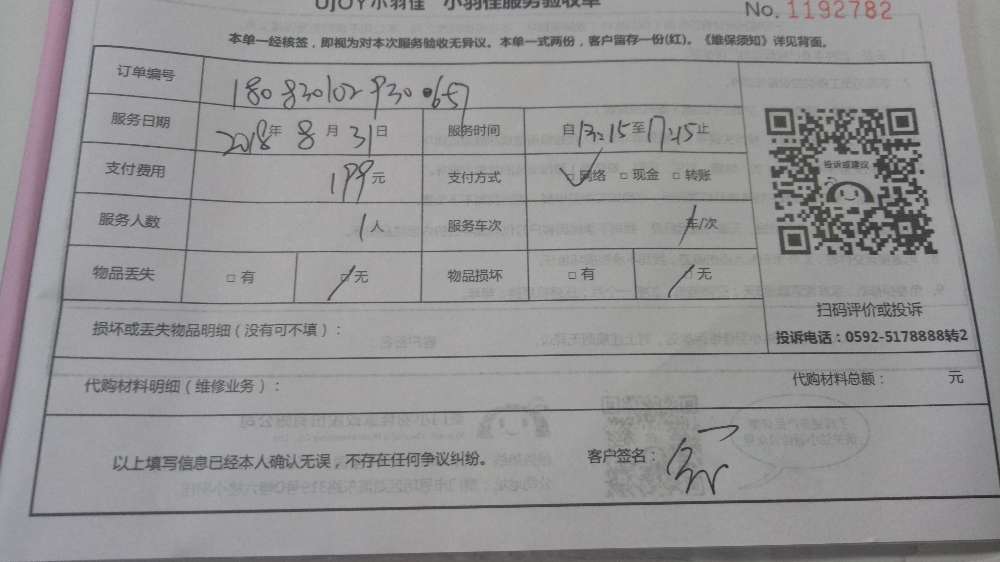 UJOY小羽佳 小羽佳服务验收单 No. 1192782
本单一经核签，即视为对本次服务验收无异议。本单一式两份，客户留存一份(红)。《维保须知》详见背面。
订单编号 180830102930065
服务日期 2018年 8 月 31日 服务时间 自13:15至17:15止
支付费用 199元 支付方式 ✓网络 □ 现金 □ 转账
服务人数 1人 服务车次 /车/次
物品丢失 □ 有 □ 无 物品损坏 □ 有 □ 无
投诉或建议
扫码评价或投诉
投诉电话：0592-5178888转2
损坏或丢失物品明细（没有可不填）：
代购材料明细（维修业务）： 代购材料总额： 元
以上填写信息已经本人确认无误，不存在任何争议纠纷。 客户签名：